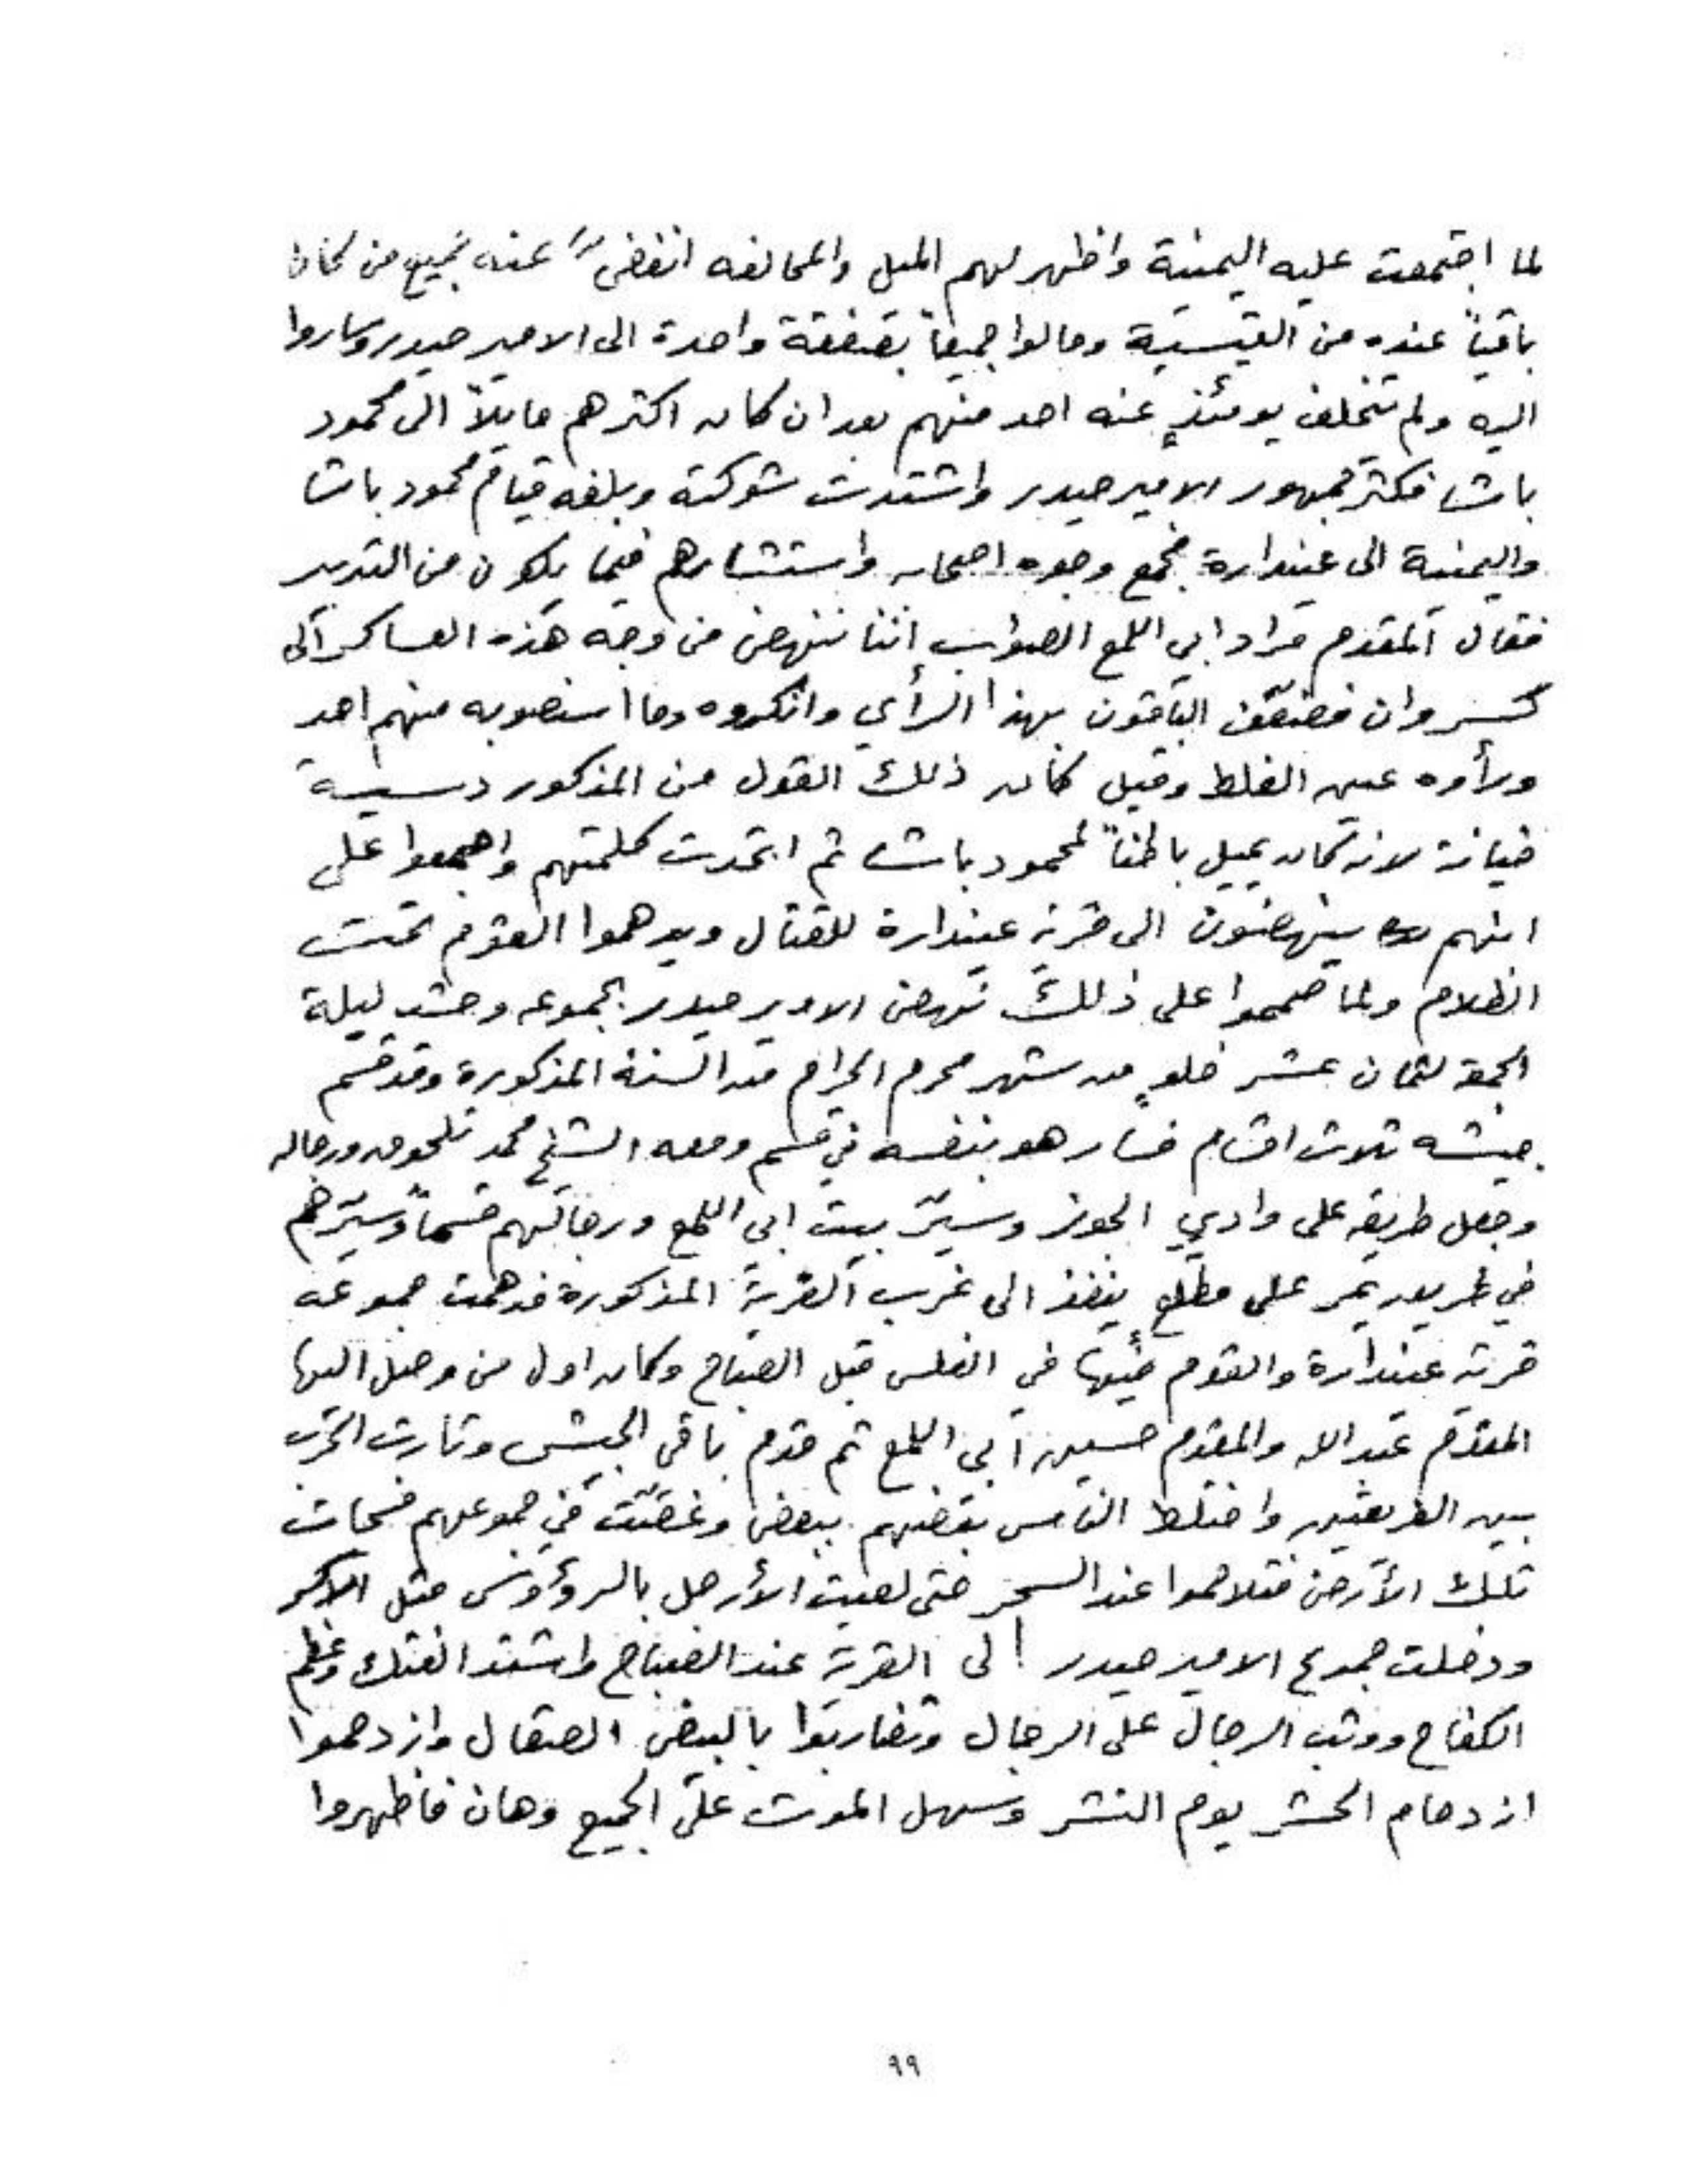 لما اجتمعت عليه اليمنية واظهر لهم الميل والمحالفه انفض عنه جميع من كان
باقياً عنده من القيسية ومالوا جميعاً بصفقة واحدة الى الامير حيدر وساروا
اليه ولم تتخلف يومئذٍ عنه احد منهم بعد ان كان اكثرهم مايلاً الى محمود
باشا فكثر جمهور الامير حيدر واشتدت شوكته وبلغه قيام محمود باشا
واليمنية الى عيندارة فجمع وجوه اصحابه واستشارهم فيما يكون من التدبير
فقال المقدم مراد ابي اللمع الصواب إننا ننهض من وجه هذه العساكر الى
كسروان فصفق الباقون بهذا الرأي وانكروه وما استصوبه منهم احد
ورأوه عين الغلط وقيل كان ذلك القول من المذكور دسيسة
خيانة لانه كان يميل باطناً لمحمود باشا ثم اتحدت كلمتهم واجمعوا على
انهم ينهضون الى قرية عيندارة للقتال ويدهموا القوم تحت
الظلام ولما صمموا على ذلك نهض الامير حيدر بجموعه وحشد ليلة
الجمعة لثمان عشر خلو من شهر محرم الحرام من السنة المذكورة وقد قسم
جيشه ثلاث اقسام فسار هو بنفسه في قسم ومعه الشيخ محمد تلحوق ورجاله
وجعل طريقه على وادي الجوز وسيّر بيت ابي اللمع ورجالهم قسماً وسيّرهم
في طريق يمر على مطلع ينفذ الى غرب القرية المذكورة فدهمت جموعه
قرية عيندارة والقوم فيها في الغلس قبل الصباح وكان اول من وصل اليها
المقدم عبد الله والمقدم حسين ابي اللمع ثم قدم باقي الجيش وثارت الحرب
بين الفريقين واختلط الناس بعضهم ببعض وغصّت في جموعهم فسحات
تلك الأرض فتلاحموا عند السحر حتى لعبت الأرجل بالرؤوس مثل الاكر
ودخلت جموع الامير حيدر الى القرية عند الصباح واشتد الفتك وعظم
الكفاح ووثب الرجال على الرجال وتضاربوا بالبيض الصقال وازدحموا
ازدحام الحشر يوم النشر وسهل الموت على الجميع وهان فاظهروا
٩٩